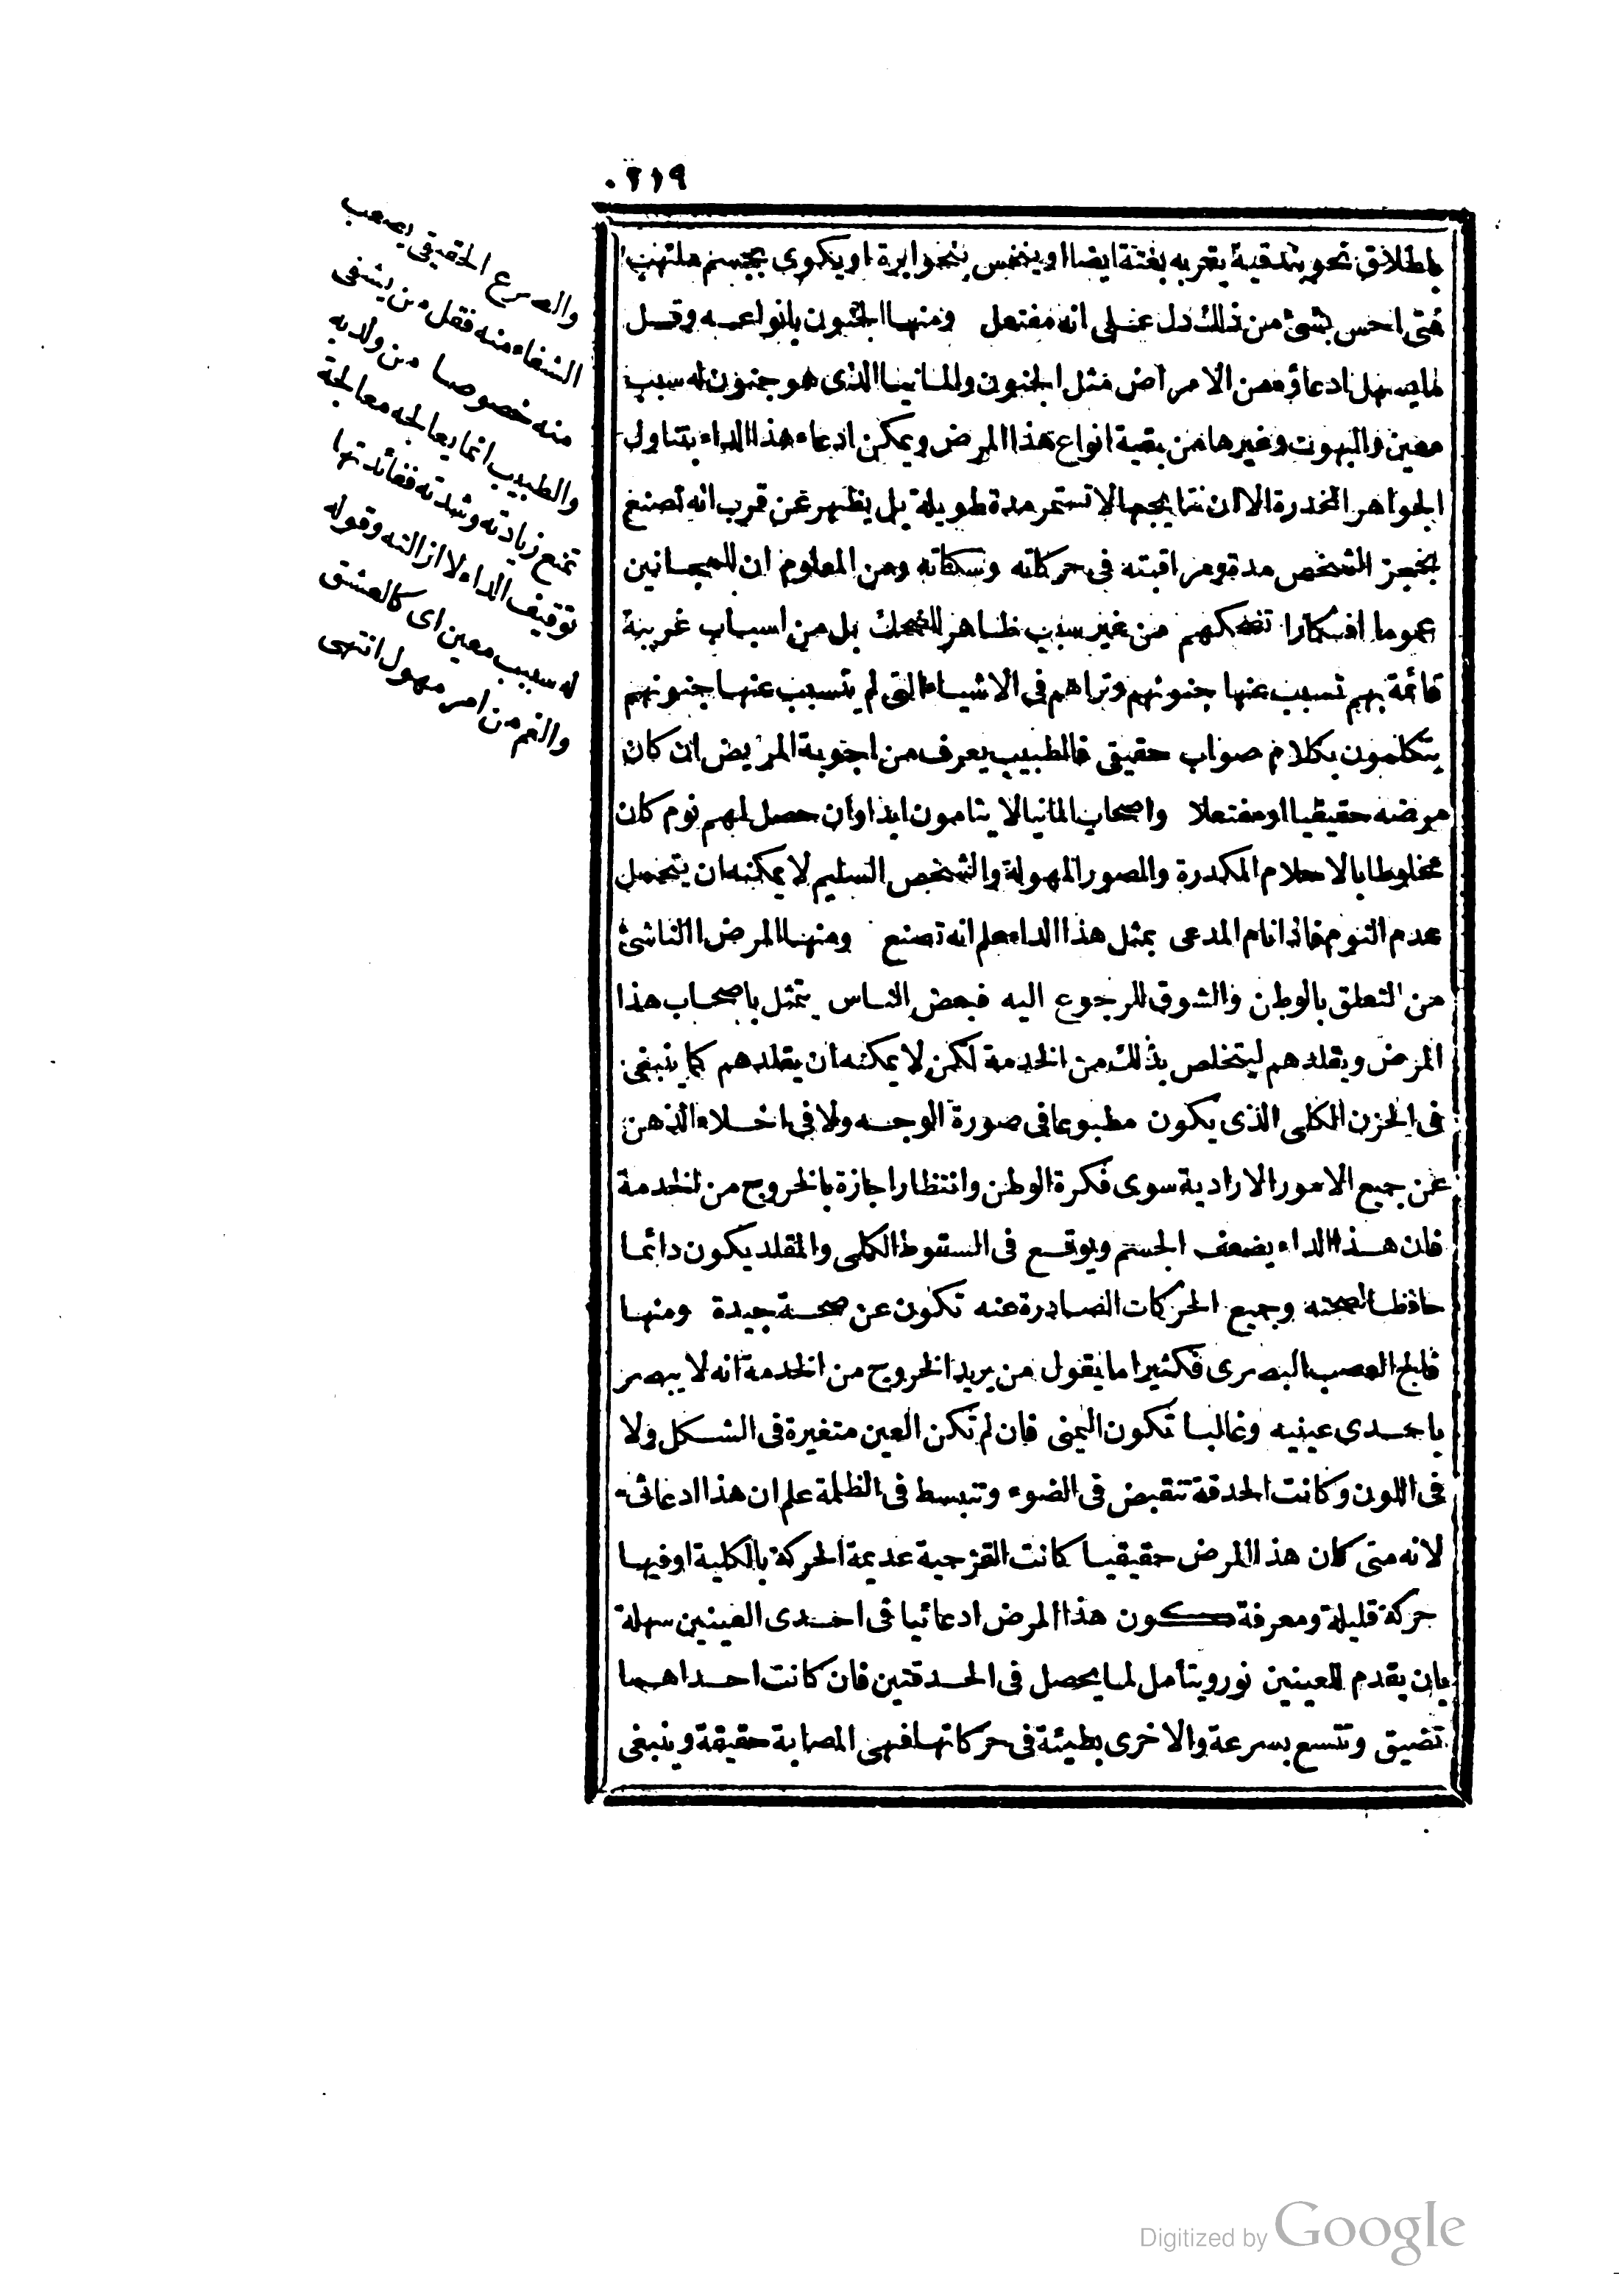 ٢١٩
باطلاق نحو بندقية بقربه بغتة ايضا او ينخس بنحو ابرة او يكوى بجسم ملتهب
فمتى احس بشئ من ذلك دل على انه مفتعل ومنها الجنون بانواعه وقل
ما يسهل ادعاؤه من الامراض مثل الجنون والمانيا الذى هو جنون له سبب
معين والبهوت وغيرها من بقية انواع هذا المرض ويمكن ادعاء هذا الداء بتناول
الجواهر المخدرة الا ان نتايجها لا تستمر مدة طويلة بل يظهر عن قرب انه تصنع
بحجز الشخص مدة ومراقبته فى حركاته وسكاته ومن المعلوم ان للمجانين
عموما افكارا تضحكهم من غير سبب ظاهر للضحك بل من اسباب غريبة
قائمة بهم تسبب عنها جنونهم وتراهم فى الاشياء التى لم يتسبب عنها جنونهم
يتكلمون بكلام صواب حقيقى فالطبيب يعرف من اجوبة المريض ان كان
مرضه حقيقيا او مفتعلا واصحاب المانيا لا ينامون ابدا وان حصل لهم نوم كان
مخلوطا بالاحلام المكدرة والصور المهولة والشخص السليم لا يمكنه ان يتحمل
عدم النوم فاذا نام المدعى بمثل هذا الداء علم انه تصنع ومنها المرض الناشئ
من التعلق بالوطن والشوق للرجوع اليه فبعض الناس يتمثل باصحاب هذا
المرض ويقلدهم ليتخلص بذلك من الخدمة لكن لا يمكنه ان يقلدهم كما ينبغى
فى الحزن الكلى الذى يكون مطبوعا فى صورة الوجه ولا فى اخلاء الذهن
عن جميع الامور الارادية سوى فكرة الوطن وانتظار اجازة بالخروج من الخدمة
فان هذا الداء يضعف الجسم ويوقع فى السقوط الكلى والمقلد يكون دائما
حافظا لصحته وجميع الحركات الصادرة عنه تكون عن صحة جيدة ومنها
فالج العصب البصرى فكثيرا ما يقول من يريد الخروج من الخدمة انه لا يبصر
باحدى عينيه وغالبا تكون اليمنى فان لم تكن العين متغيرة فى الشكل ولا
فى اللون وكانت الحدقة تنقبض فى الضوء وتنبسط فى الظلمة علم ان هذا ادعائى
لانه متى كان هذا المرض حقيقيا كانت القزحية عديمة الحركة بالكلية او فيها
حركة قليلة ومعرفة كون هذا المرض ادعائيا فى احدى العينين سهلة
بان يقدم للعينين نور ويتأمل لما يحصل فى الحدقتين فان كانت احداهما
تضيق وتتسع بسرعة والاخرى بطيئة فى حركاتها فهى المصابة حقيقة وينبغى
والصرع الحقيقى يصعب
الشفاء منه فقل من يشفى
منه خصوصا من ولد به
والطبيب انما يعالجه معالجة
تمنع زيادته وشدته ففائدتها
توقيف الداء لا ازالته وقوله
له سبب معين اى كالعشق
والغم من امر مهول انتهى
Digitized by Google